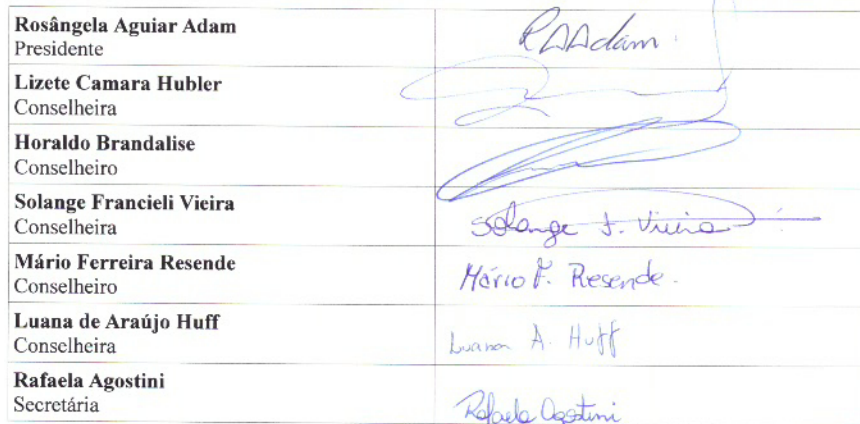 Rosângela Aguiar Adam
Presidente
RAAdam.
Lizete Camara Hubler
Conselheira
Horaldo Brandalise
Conselheiro
Solange Francieli Vieira
Conselheira
Solange F. Vieira
Mário Ferreira Resende
Conselheiro
Mário F. Resende.
Luana de Araújo Huff
Conselheira
Luana A. Huff
Rafaela Agostini
Secretária
Rafaela Agostini